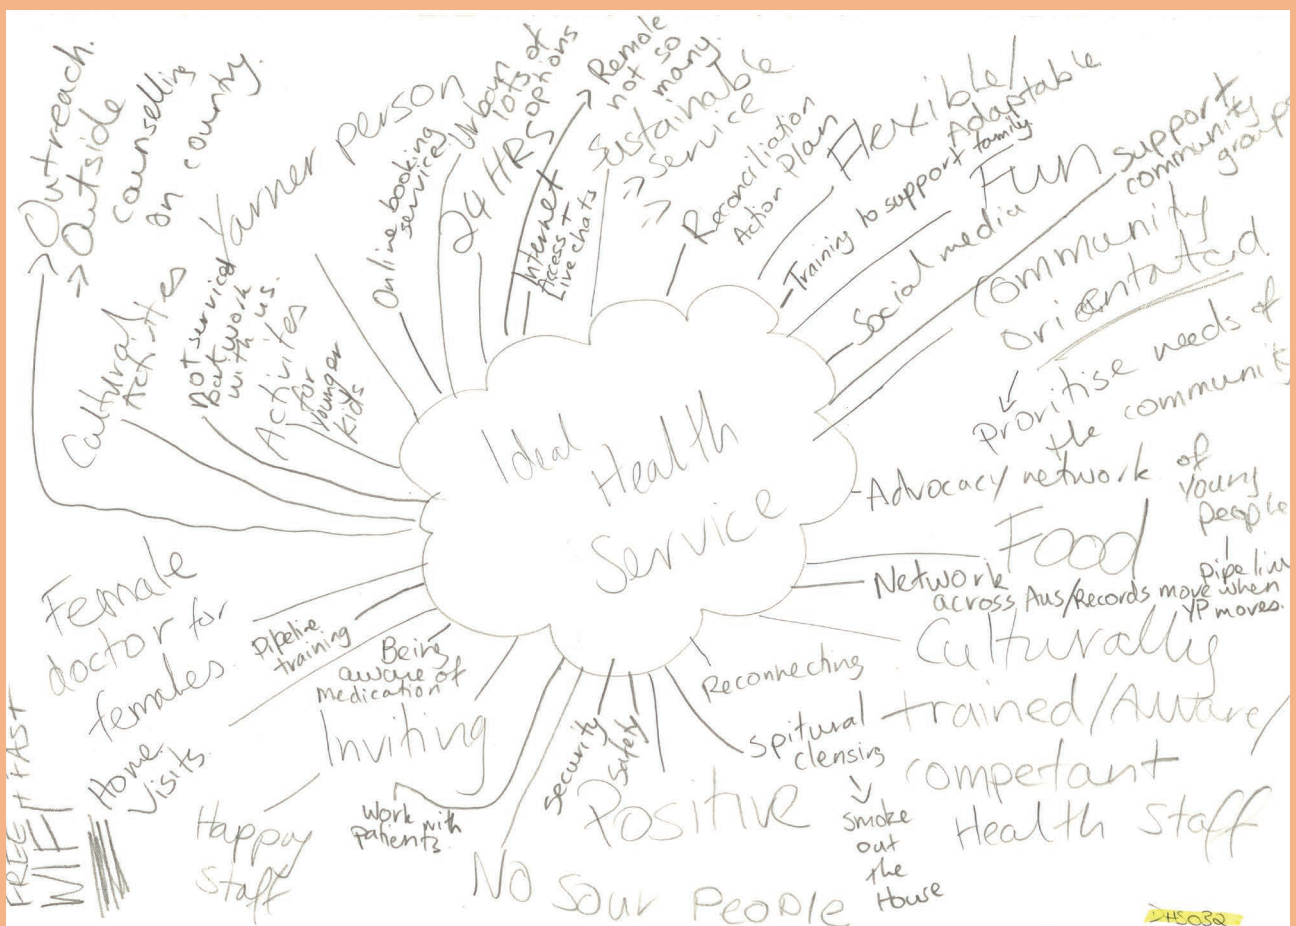 Ideal
Health
Service
> Outreach.
> Outside
counselling
on country.
Cultural
Activities
Not service
But work
with us.
Activites
for
younger
kids
Yarner person
Online booking
service
Urban
lots of
options
24 HRS
Internet
Access +
Live chats
> Remote
not so
many.
Sustainable
> service
Reconciliation
Action Plan
Flexible/
Adaptable
Training to support family
Fun
Social media
support
community
groups
Community
orientated.
prioritise needs of
the community
Advocacy network of
young
people
pipeline
Food
Network
across Aus/Records move when
YP moves.
Culturally
trained/Aware/
competant
Health Staff
Reconnecting
Spitural
clensing
Smoke
out
the
House
Positive
Safety
security
No Sour People
Work with
patients.
Inviting
Happy
Staff
Being
aware of
medication
Home
Visits
Pipeline
training
Female
doctor for
females.
FREE + FAST
WIFI
DHS032